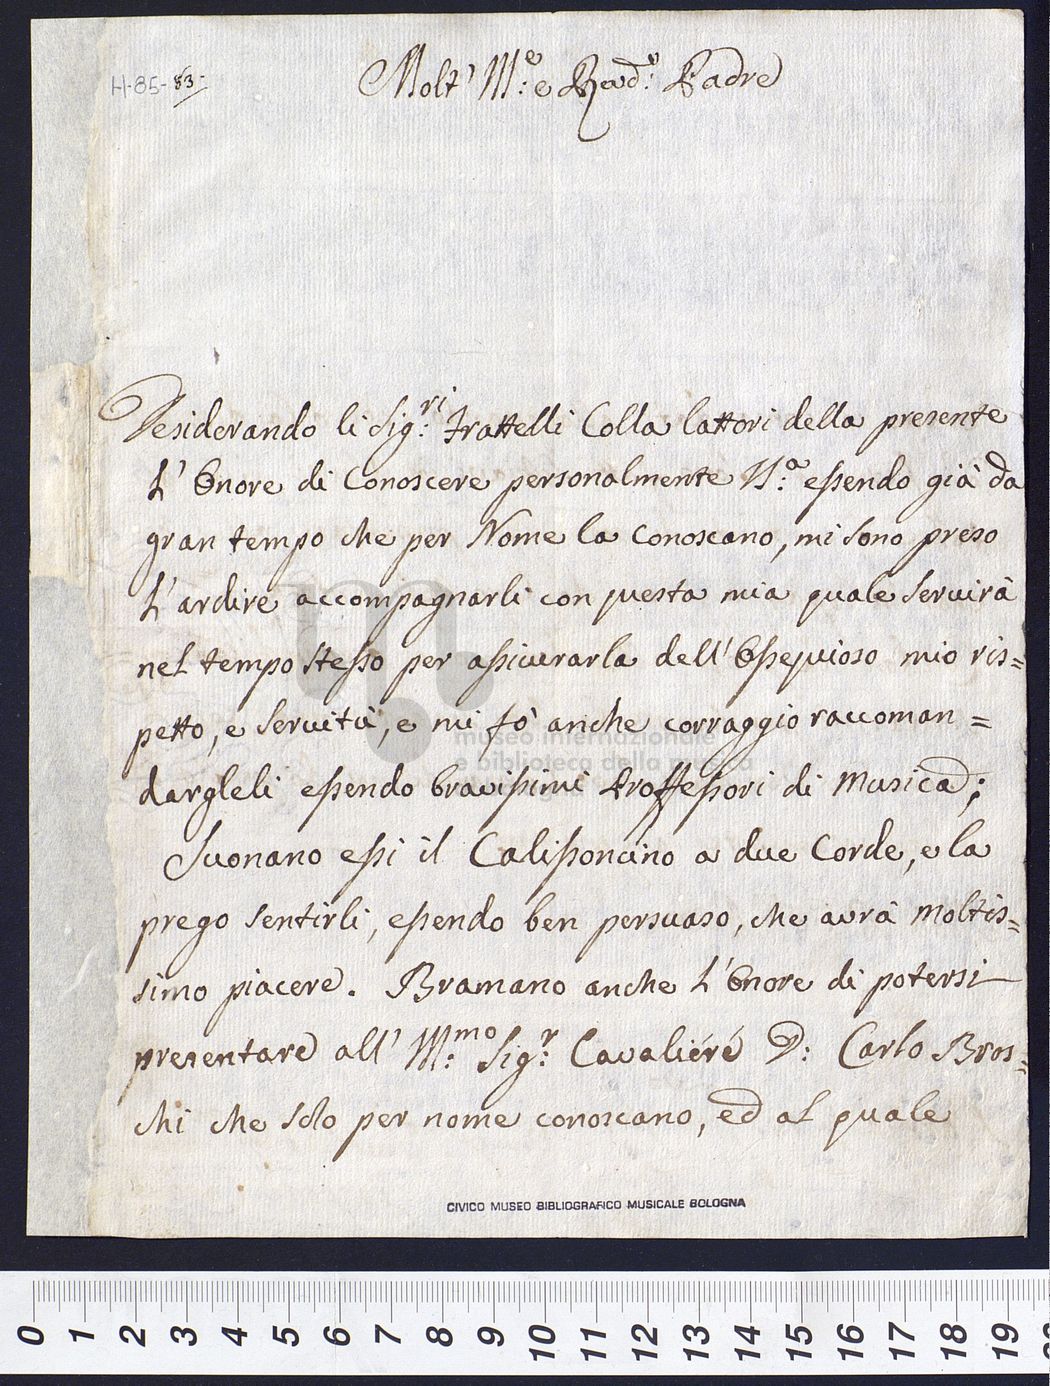 H-85-83-
Molt' Ill.e e Rev.d.o Padre
Desiderando li Sig.ri Frattelli Colla lattori della presente
L'Onore di Conoscere personalmente V.S.a essendo già da
gran tempo che per Nome la Conoscano, mi sono preso
L'ardire accompagnarli con questa mia quale servirà
nel tempo stesso per assicurarla dell'Ossequioso mio ris=
petto, e servitù, e mi fò anche corraggio raccoman=
dargleli essendo bravissimi Proffessori di Musica;
Suonano essi il Calissoncino a due Corde, e la
prego sentirli, essendo ben persuaso, che avrà moltis=
simo piacere. Bramano anche L'Onore di potersi
presentare all' Ill.mo Sig.r Cavaliéré D: Carlo Bros=
chi che solo per nome conoscano, ed al quale
museo internazionale
e biblioteca della musica
CIVICO MUSEO BIBLIOGRAFICO MUSICALE BOLOGNA
0 1 2 3 4 5 6 7 8 9 10 11 12 13 14 15 16 17 18 19